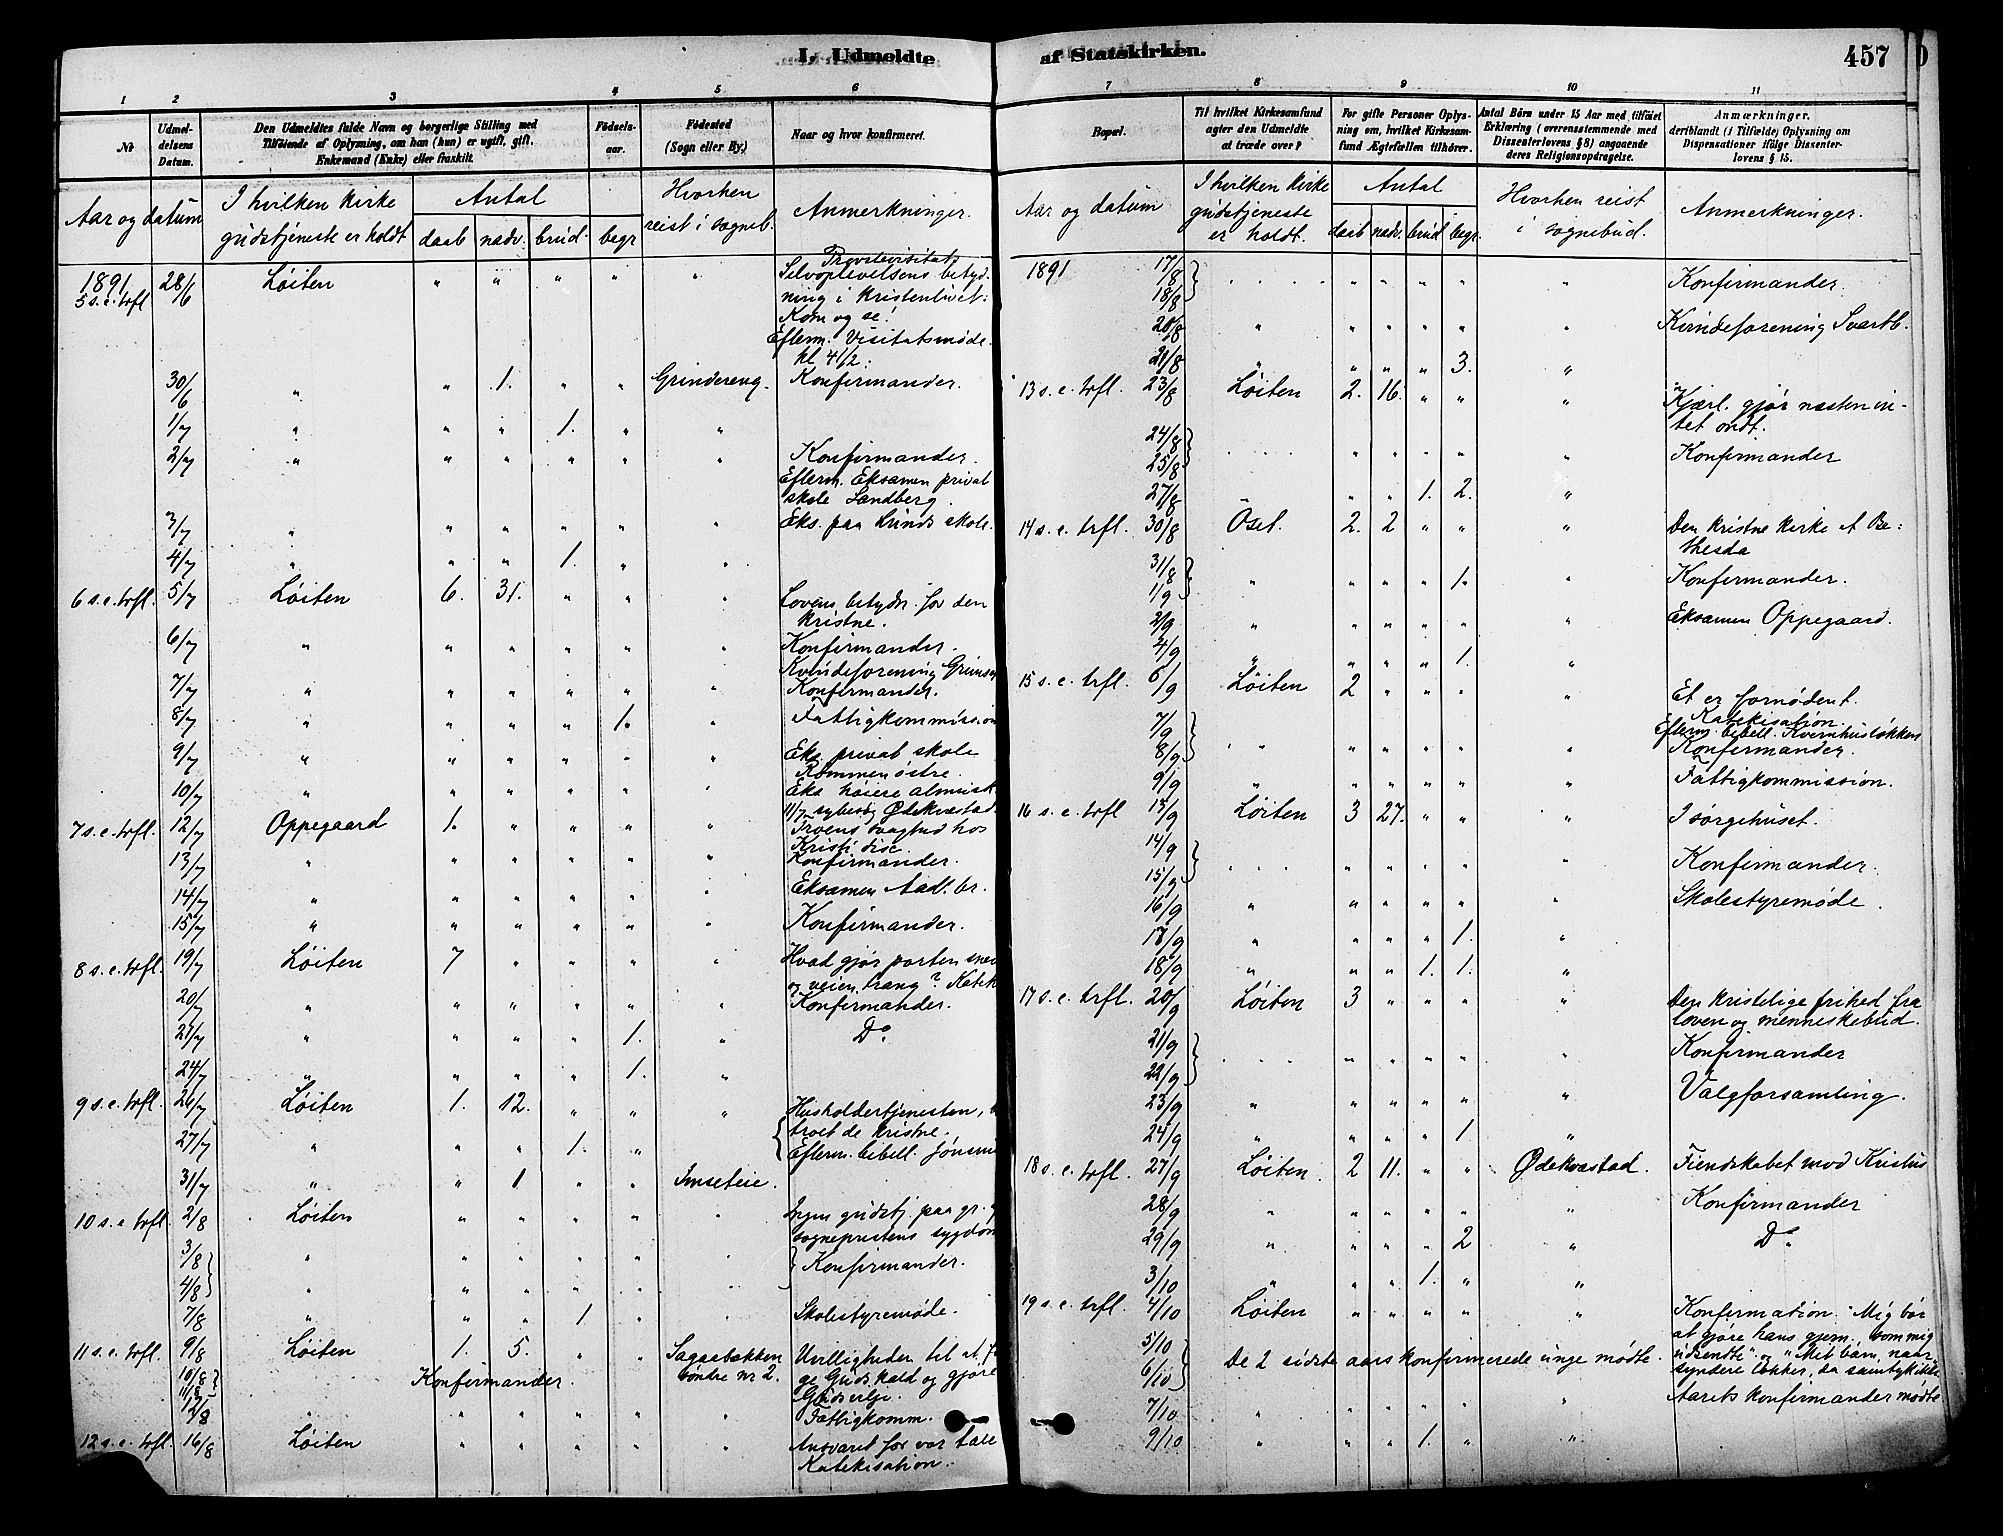 I. Udmeldte af Statskirken. 457
1 2 3 4 5 6
№ Udmeldelsens Datum. Den Udmeldtes fulde Navn og borgerlige Stilling med Tilføiende af Oplysning, om han (hun) er ugift, gift, Enkemand (Enke) eller fraskilt. Fødselsaar. Fødested (Sogn eller By). Naar og hvor konfirmeret.
Aar og datum I hvilken kirke gudstjeneste er holdt Antal daab nadv. brud. begr Hvorhen reist i sogneb. Anmerkninger.
1891 28/6 Løiten " " " " " Provstevisitats
5 s. e. trfl Selvoplevelsens betyd-
ning i kristenlivet:
Kom og se!
Efterm. Visitatsmøde
kl 4 1/2.
30/6 " " 1. " " Grindereng. Konfirmander.
1/7 " " " 1. " "
2/7 " " " " " " Konfirmander.
Efterm. Eksamen privat
skole Sandberg.
3/7 " " " " " " Eks. paa Lunds skole.
4/7 " " " 1. " "
6 s. e. trfl. 5/7 Løiten 6. 31. " " " Lovens betydn. for den
kristne.
6/7 " " " " " " Konfirmander.
Kvindeforening
7/7 " " " " " " Konfirmander.
8/7 " " " " 1. " Fattigkommission
9/7 " " " " " " Eks. privat skole
Rommen østre.
10/7 " " " " " " Eks høiere almuesk.
11/7 sybesøg Ødekvæstad
7 s. e. trfl. 12/7 Oppegaard 1. " " " " Troens svaghed hos
Kristi disc.
13/7 " " " " " " Konfirmander.
14/7 " " " " " " Eksamen Aadl. br.
15/7 " " " " " " Konfirmander.
8 s. e. trfl. 19/7 Løiten 7 " " " " Hvad gjør porten snæv
og veien trang? Katek
20/7 " " " " " " Konfirmander.
21/7 " " " " 1. " Do
24/7 " " " " 1. "
9 s. e. trfl. 26/7 Løiten 1. 12. " " " Husholdertjenesten,
troet de kristne.
27/7 " " " 1. " Efterm. bibell.
31/7 " " 1 " " Imseteie.
10 s. e trfl. 2/8 Løiten " " " " " Ingen gudstj. paa gr.
sogneprestens sygdom
3/8 " " " " " " Konfirmander.
4/8 " " " " "
7/8 " " " 1 " " Skolestyremøde.
11 s. e. trfl. 9/8 Løiten 1. 5. " " Sagaebakken Uvilligheden til at
10/8 Konfirmander. søndre nr 2. Guds kald og gjøre
11/8 Guds vilje.
12/8 " " " " " " Fattigkomm.
12 s. e. trfl. 16/8 Løiten " " " " " Ansvaret for vor tale
Katekisation.
7 8 9 10 11
Bopæl. Til hvilket Kirkesamfund agter den Udmeldte at træde over? For gifte Personer Oplysning om, hvilket Kirkesamfund Ægtefællen tilhører. Antal Børn under 15 Aar med tilføiet Erklæring (overensstemmende med Dissenterlovens § 8) angaaende deres Religionsopdragelse. Anmærkninger, deriblandt (i Tilfælde) Oplysning om Dispensationer ifølge Dissenterlovens § 15.
Aar og datum I hvilken kirke gudstjeneste er holdt. Antal daab nadv. brud begr. Hvorhen reist i sognebud. Anmerkninger.
1891 17/8
18/8 " " " " " Konfirmander.
20/8 " " " " " " Kvindeforening Svartb.
21/8 " " " " 3. "
13 s. e. trfl. 23/8 Løiten 2. 16. " " " Kjærl. gjør næsten in-
tet ondt.
24/8
25/8 " " " " " Konfirmander
27/8 " " 1. 2. "
14 s. e. trfl. 30/8 Oset. 2. 2 " " " Den kristne kirke et Be-
thesda
31/8
1/9 " " " " 1. " Konfirmander.
2/9 " " " " " " Eksamen Oppegaard.
4/9 " " " " 1. "
15 s. e. trfl. 6/9 Løiten 2 " " " " Et er fornødent.
Katekisation.
Efterm. bibell. Kvernhusløkken
7/9
8/9 " " " " " " Konfirmander.
9/9 " " " " " " Fattigkommission.
16 s. e. trfl 13/9 Løiten 3 27. " " " I sørgehuset.
14/9
15/9 " " " " " Konfirmander.
16/9 " " " " " " Skolestyremøde.
17/9 " " " " 1. "
18/9 " " " 1. 1. "
17 s. e. trfl. 20/9 Løiten 3 " " " " Den kristelige frihed fra
loven og menneskebud.
21/9
22/9 " " " " " Konfirmander
23/9 " " " " " " Valgforsamling.
24/9 " " " " 1. "
18 s. e. trfl. 27/9 Løiten. 2 11. " " Ødekvæstad. Fiendskabet mod Kristus
28/9 " " " " " " Konfirmander
29/9 " " " " 2 " Do
3/10 " " " 1. " "
19 s. e. trfl. 4/10 Løiten " " " " " Konfirmation. "Mig bør
at gjøre hans gjern., som mig
udsendte" og "Mit barn, naar
syndere lokker, da samtyk ikke
5/10
6/10 De 2 sidste aars konfirmerede unge mødte.
7/10 " " " " " " Aarets konfirmander mødte
9/10 " " " 1. " "